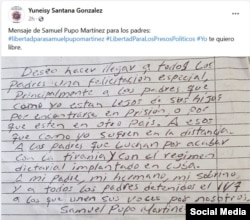 Yuneisy Santana Gonzalez
2h
Mensaje de Samuel Pupo Martínez para los padres:
#libertadparasamuelpupomartinez #LibertadParaLosPresosPolíticos #Yo te quiero
libre.
Deseo hacer llegar a todos los
Padres una felicitación especial,
Principalmente a los padres que
como yo estan lejos de sus hijos
por encontrarse en Prisión o por
que esten en otro País. A esos
que como yo sufren en la distancia.
A los padres que luchan por acabar
con la tiranía y con el regimen
dictatorial implantado en cuba.
A mi padre, mi hermano, mi sobrino
y a todos los padres detenidos el 11/7
a los que unen sus voces por nosotros.
Samuel Pupo Martínez
Social Media